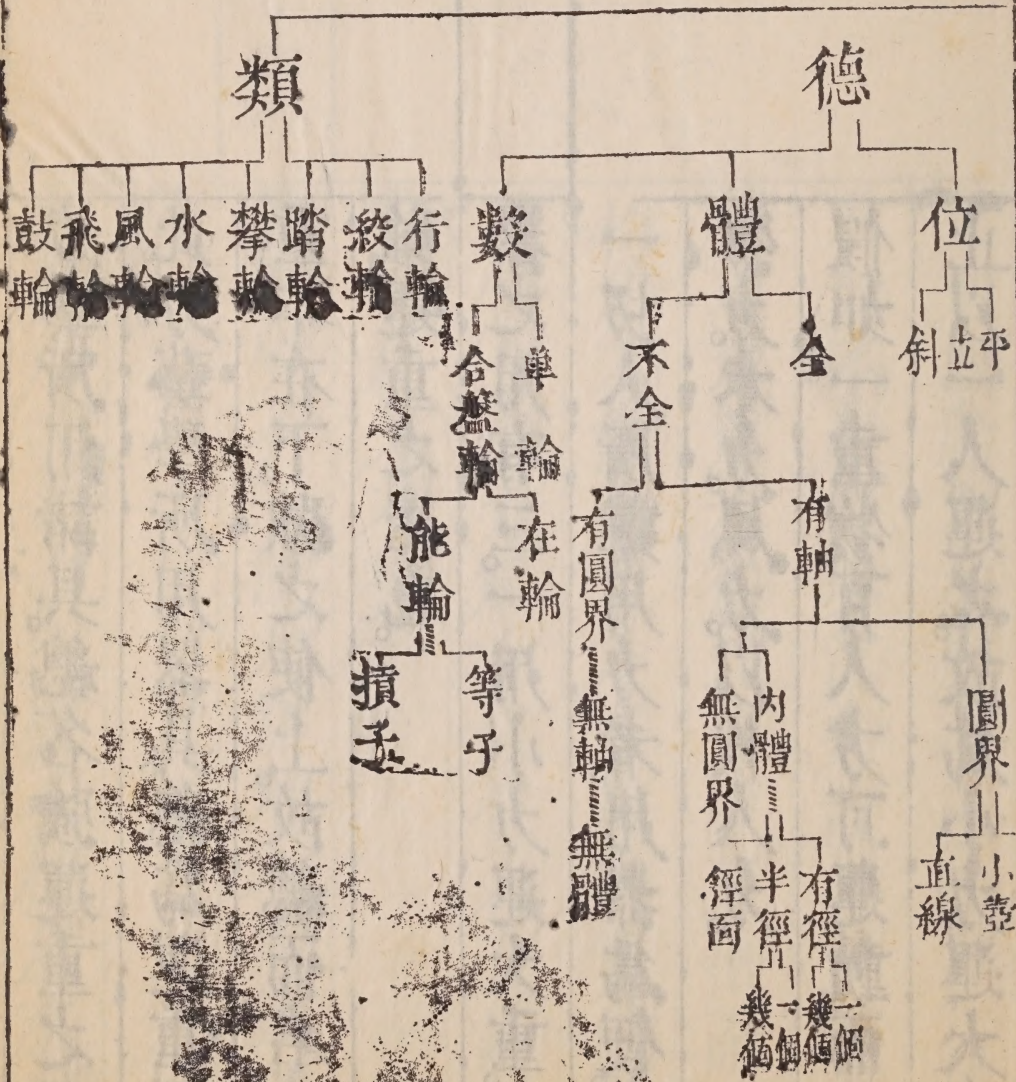 德
位
平
立
斜
體
全
不全
有軸
圓界
小
直線
內體
有徑
一個
幾個
半徑
一個
幾個
徑面
無圓界
有圓界
無軸
無體
數
單輪
在輪
合盤輪
能輪
等子
類
行輪
絞輪
踏輪
攀輪
水輪
風輪
飛輪
鼓輪